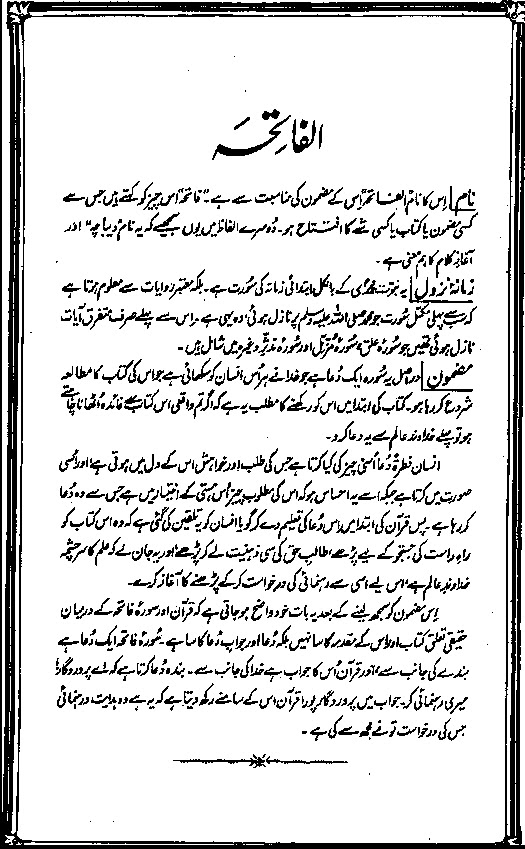 الفاتحہ
نام | اِس کا نام الفاتحہ اس کے مضمون کی مناسبت سے ہے۔ "فاتحہ" اس چیز کو کہتے ہیں جس سے
کسی مضمون یا کتاب یا کسی شے کا افتتاح ہو۔ دُوسرے الفاظ میں یوں سمجھیے کہ یہ نام "دیباچہ" اور
آغازِ کلام کا ہم معنی ہے۔
زمانۂ نزول | یہ نبوّتِ محمّدی کے بالکل ابتدائی زمانہ کی سُورت ہے۔ بلکہ معتبر روایات سے معلوم ہوتا ہے
کہ سب سے پہلی مکمل سُورت جو محمد صلی اللہ علیہ وسلم پر نازل ہوئی وہ یہی ہے۔ اس سے پہلے صرف متفرق آیات
نازل ہوئی تھیں جو سُورۂ علق، سُورۂ مزّمّل اور سُورۂ مدثّر وغیرہ میں شامل ہیں۔
مضمون | دراصل یہ سُورہ ایک دُعا ہے جو خدا نے ہر اُس انسان کو سکھائی ہے جو اس کی کتاب کا مطالعہ
شروع کر رہا ہو۔ کتاب کی ابتدا میں اس کو رکھنے کا مطلب یہ ہے کہ اگر تم واقعی اس کتاب سے فائدہ اُٹھانا چاہتے
ہو تو پہلے خداوندِ عالم سے یہ دعا کرو۔
انسان فطرۃً دُعا اُسی چیز کی کیا کرتا ہے جس کی طلب اور خواہش اس کے دل میں ہوتی ہے، اور اُسی
صورت میں کرتا ہے جبکہ اسے یہ احساس ہو کہ اس کی مطلوب چیز اُس ہستی کے اختیار میں ہے جس سے وہ دُعا
کر رہا ہے۔ پس قرآن کی ابتدا میں اِس دُعا کی تعلیم دے کر گویا انسان کو یہ تلقین کی گئی ہے کہ وہ اس کتاب کو
راہِ راست کی جستجو کے لیے پڑھے، طالبِ حق کی سی ذہنیت لے کر پڑھے اور یہ جان لے کہ علم کا سرچشمہ
خداوندِ عالم ہے، اس لیے اسی سے رہنمائی کی درخواست کر کے پڑھنے کا آغاز کرے۔
اِس مضمون کو سمجھ لینے کے بعد یہ بات خود واضح ہو جاتی ہے کہ قرآن اور سورۂ فاتحہ کے درمیان
حقیقی تعلق کتاب اور اس کے مقدمہ کا سا نہیں بلکہ دُعا اور جوابِ دُعا کا سا ہے۔ سُورۂ فاتحہ ایک دُعا ہے
بندے کی جانب سے، اور قرآن اُس کا جواب ہے خدا کی جانب سے۔ بندہ دُعا کرتا ہے کہ اے پروردگار!
میری رہنمائی کر۔ جواب میں پروردگار پورا قرآن اس کے سامنے رکھ دیتا ہے کہ یہ ہے وہ ہدایت و رہنمائی
جس کی درخواست تو نے مجھ سے کی ہے۔